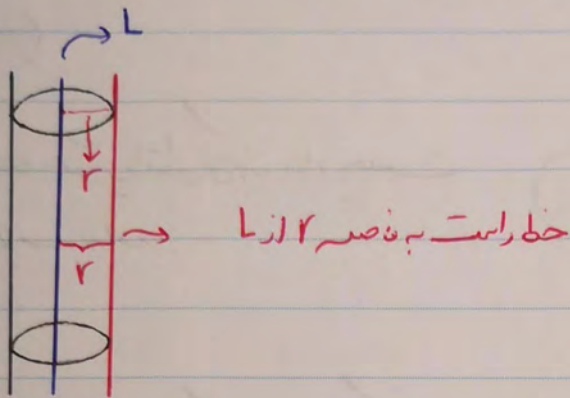 L
r
r
خط راست به فاصله r از L